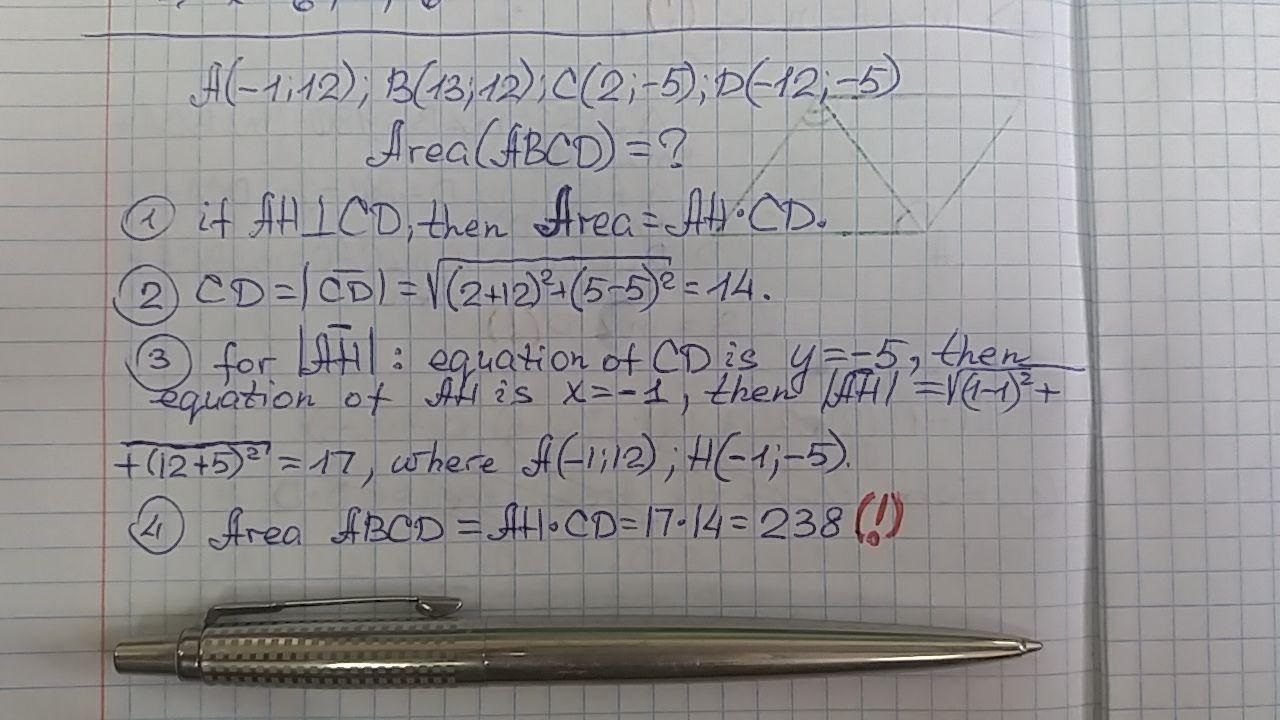 A(-1;12); B(13;12); C(2;-5); D(-12;-5)
Area(ABCD)=?
① if AH⊥CD, then Area=AH·CD.
② CD=|C̅D̅|=√((2+12)²+(5-5)²)=14.
③ for |A̅H̅|: equation of CD is y=-5, then
equation of AH is x=-1, then |A̅H̅|=√(1-1)²+
+(12+5)²=17, where A(-1;12); H(-1;-5).
④ Area ABCD=AH·CD=17·14=238(!)